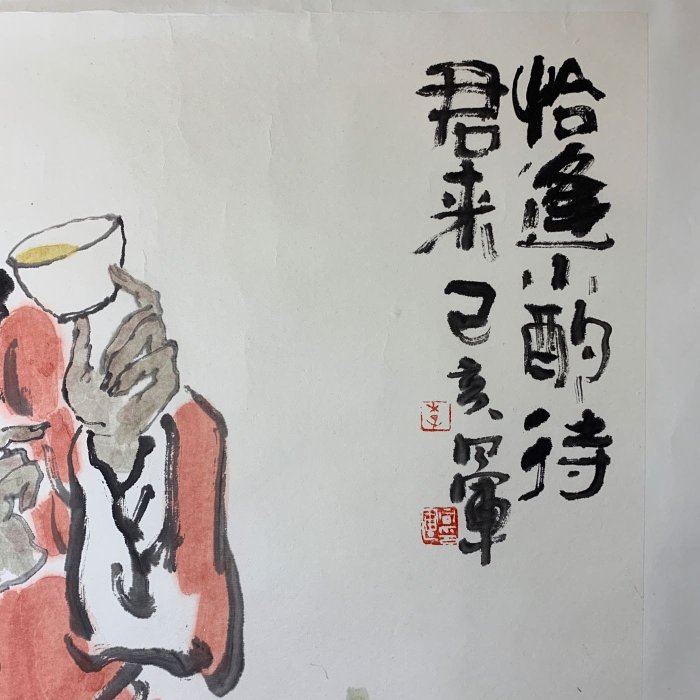 恰逢小酌待
君来 己亥 军
李